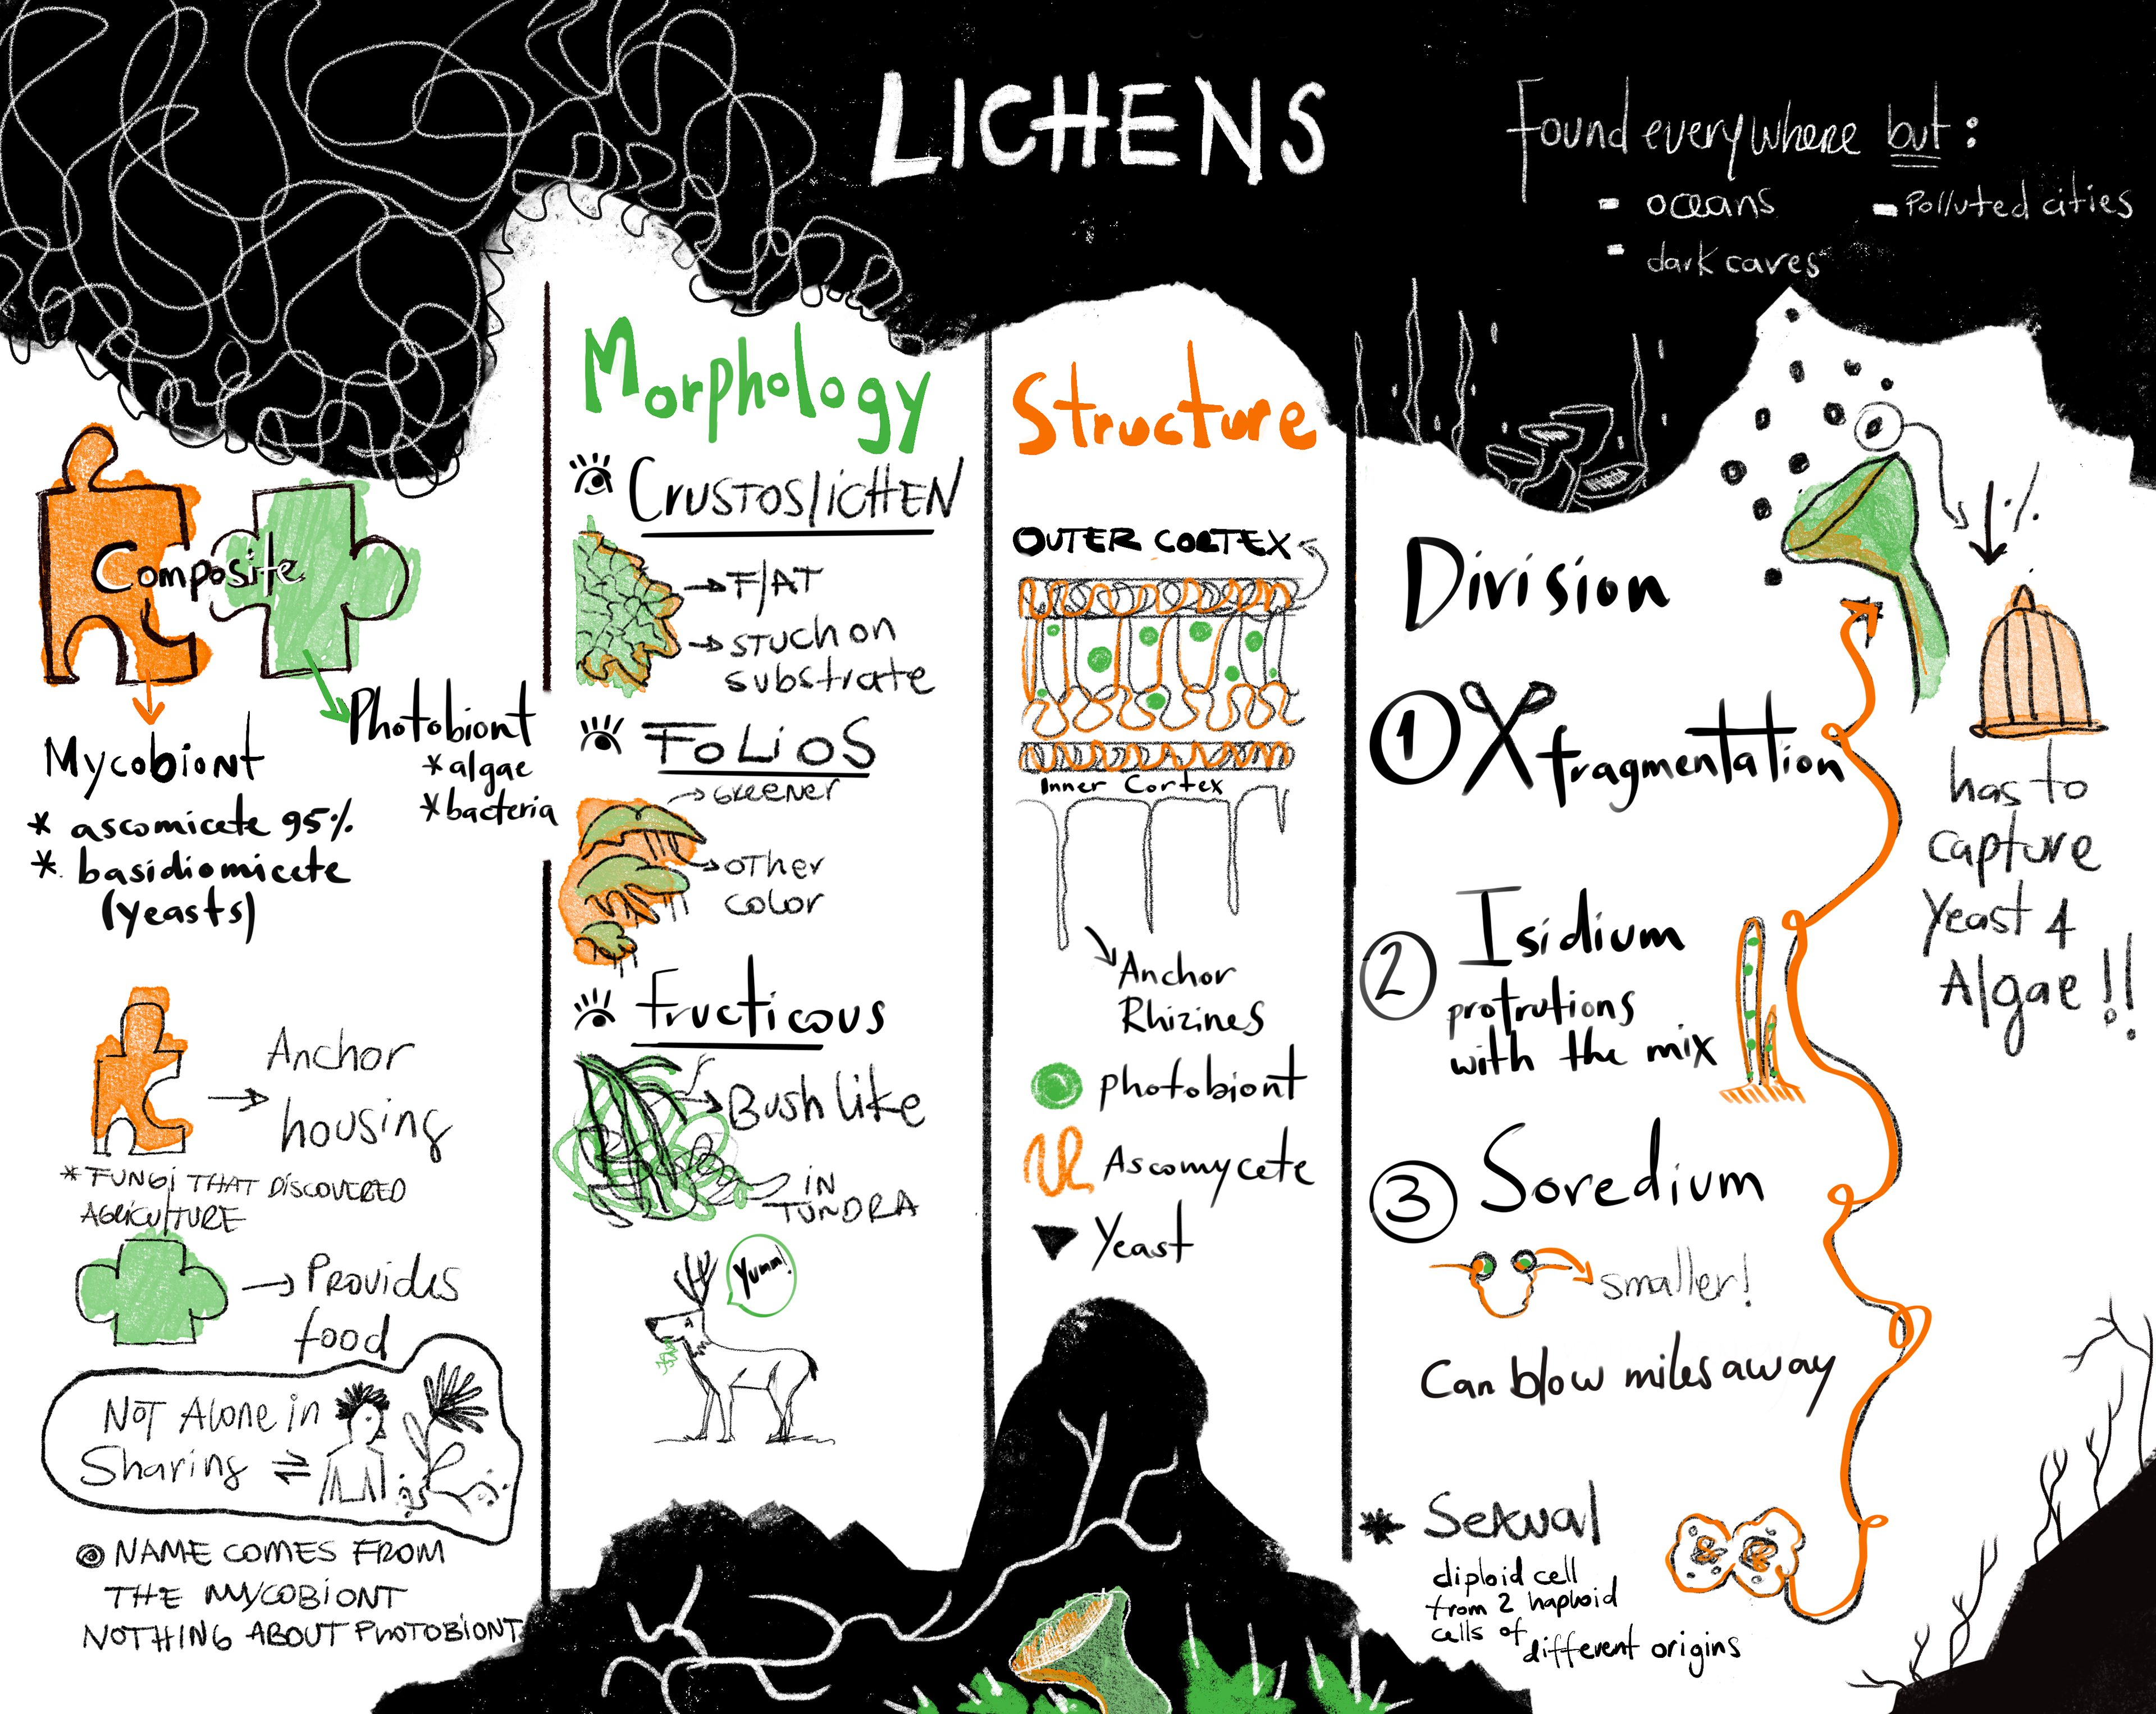 LICHENS
Found everywhere but:
- oceans
- Polluted cities
- dark caves
Composite
Mycobiont
* ascomicete 95%
* basidiomicete
(yeasts)
Photobiont
* algae
* bacteria
Anchor
housing
* FUNGi THAT DiSCOVERED
AGRiCULTURE
Provides
food
NOT Alone in
Sharing
NAME COMES FROM
THE MYCOBIONT
NOTHING ABOUT PHOTOBIONT
Morphology
CRUSTOSlICHEN
FlAT
STUCh on
substrate
FOLiOS
GREENER
OTHER
COLOR
Fructicous
Bush like
IN
TUNDRA
Yumm!
Structure
OUTER CORTEX
Inner Cortex
Anchor
Rhizines
photobiont
Ascomycete
Yeast
Division
1 fragmentation
2 Isidium
protrutions
with the mix
3 Soredium
smaller!
Can blow miles away
* Sexual
diploid cell
from 2 haploid
cells of
different origins
1%
has to
capture
Yeast &
Algae!!